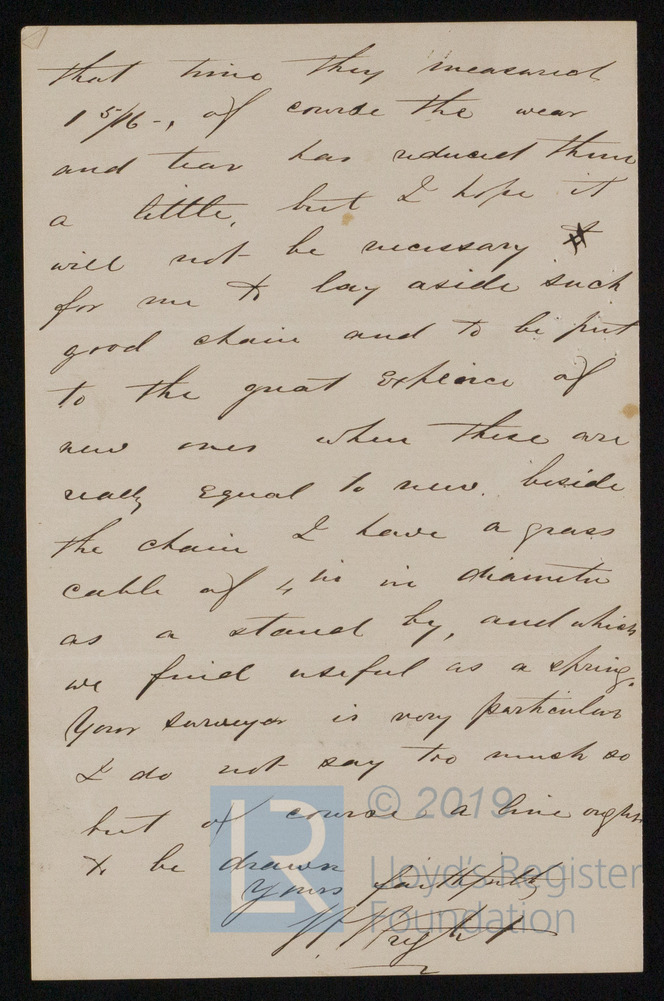 that time they measured
1 5/16 -, of course the wear
and tear has reduced them
a little, but I hope it
will not be necessary
for me to lay aside such
good chain and to be put
to the great Expence of
new ones when these are
really Equal to new. beside
the chain I have a grass
cable of 4 in in diameter
as a stand by, and which
we find useful as a spring.
Your surveyor is very particular
I do not say too much so
but of course a line ought
to be drawn
Yours faithfully
Wright
© 2019
LR
Lloyd's Register
Foundation